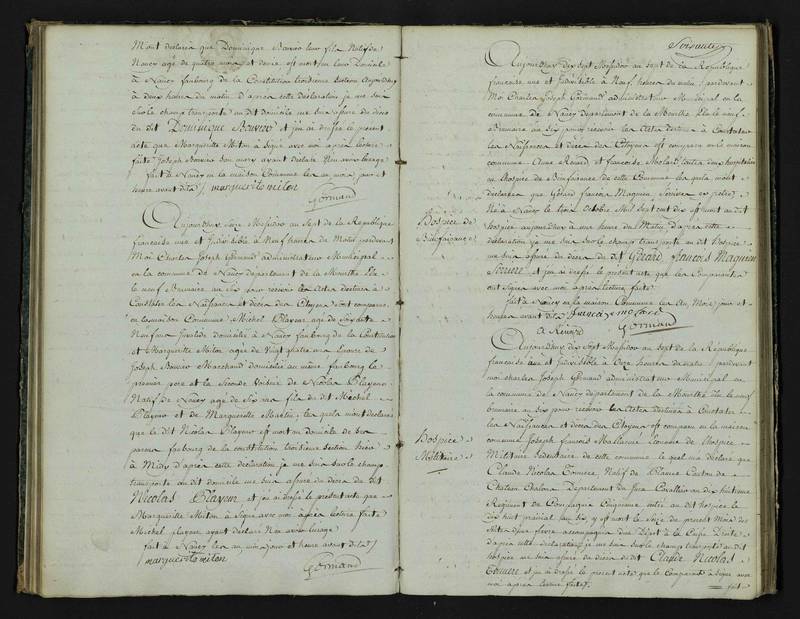 M'ont declaré que Dominique Bouvier leur fils Natif de
Nancy agé de quatre mois et demie est mort en leur Domicile
à Nancy faubourg de la Constitution troisieme Section Aujourd'huy
à deux heures du matin d'après cette déclaration je me suis
Sur le champ transporté au dit domicile me suis assuré du deces
du dit Dominique Bouvier et j'ai dressé le present
acte que Marguerite Miton a Signé avec moi après lecture
faite Joseph Bouvier son mary ayant declaré Neu avoir l'usage
fait à Nancy en la maison Commune les an mois jour et
heure avant dits marguerite miton
Gormand
Aujourd'huy Seize Messidor an Sept de la Republique
françoise une et Indivisible à Neuf heures du Matin pardevant
Moi Charles Joseph Gormand administrateur Municipal
en la commune de Nancy département de la Meurthe Elu
le neuf Brumaire an Six pour recevoir les Actes destinés à
Constater les Naissances et deces des Citoyens Sont comparus
en la maison Commune Michel Playeur agé de Soixante
Neuf ans Invalide domicilié à Nancy faubourg de la Constitution
et Marguerite Miton agée de Vingt quatre ans Epouse de
Joseph Bouvier Marchand domicilié au même faubourg le
premier pere et la Seconde Voisine de Nicolas Playeur
Natif de Nancy agé de Six ans fils du dit Michel
Playeur et de Marguerite Martin, lesquels m'ont declaré
que le dit Nicolas Playeur est mort au domicile de ses
parens faubourg de la constitution troisieme section hier
à Midy d'après cette declaration je me suis sur le champ
transporté au dit domicile me suis assuré du deces du dit
Nicolas Playeur et j'ai dressé le present acte que
Marguerite Miton a Signé avec moi après lecture faite
Michel playeur ayant declaré Neu avoir l'usage
fait à Nancy les an mois Jour et heure avant dits
marguerite miton
Gormand
Soixante
Aujourd'huy dix Sept Messidor an Sept de la République
françoise une et Indivisible à Neuf heures du matin pardevant
Moi Charles Joseph Gormand administrateur Municipal en la
commune de Nancy département de la Meurthe Elu le neuf
Brumaire an Six pour recevoir les Actes destinés à Constater
les Naissances et deces des Citoyens est comparu en la maison
commune Anne Renard et françoise Molard toutes deux hospitalieres
en l'hospice de Bienfaisance de cette Commune lesquels m'ont
declarés que Gérard françois Maquieu
Né à Nancy le trois Octobre Mil Sept cent dix est mort au dit
hospice aujourd'huy à une heure du Matin d'après cette
déclaration je me suis sur le champ transporté au dit Hospice
me suis assuré du deces du dit Gérard françois Maquieu
et j'ai dressé le present acte que les Comparantes
ont Signé avec moi après lecture faite
fait à Nancy en la maison Commune les An, Mois, jour et
heure avant dits françoise molard
A Renard Gormand
Hospice de
Bienfaisance
Aujourd'huy dix Sept Messidor an sept de la République
françoise une et Indivisible à Onze heures du matin pardevant
moi charles Joseph Gormand administrateur Municipal en
la commune de Nancy département de la Meurthe Elu le neuf
brumaire an Six pour recevoir les Actes destinés à Constater
les Naissances et deces des Citoyens est comparu en la maison
commune Joseph françois Mallarmé Econome de l'hospice
Militaire Sedentaire de cette commune lequel m'a declaré que
Claude Nicolas Natif de Canton de
Chateau Chalon Departement du Jura Cavallier au dix huitieme
Regiment de Compagnie entré au dit hospice le
dix huit prairial an Sept y est mort le Seize du present Mois des
Suites d'une fievre accompagnée d'un Depôt à la Cuisse Droite
d'après cette declaration je me suis sur le champ transporté au dit
hospice me suis assuré du deces du dit Claude Nicolas
et j'ai dressé le present acte que le Comparant a signé avec
moi après lecture faite.
fait
Hospice
Militaire